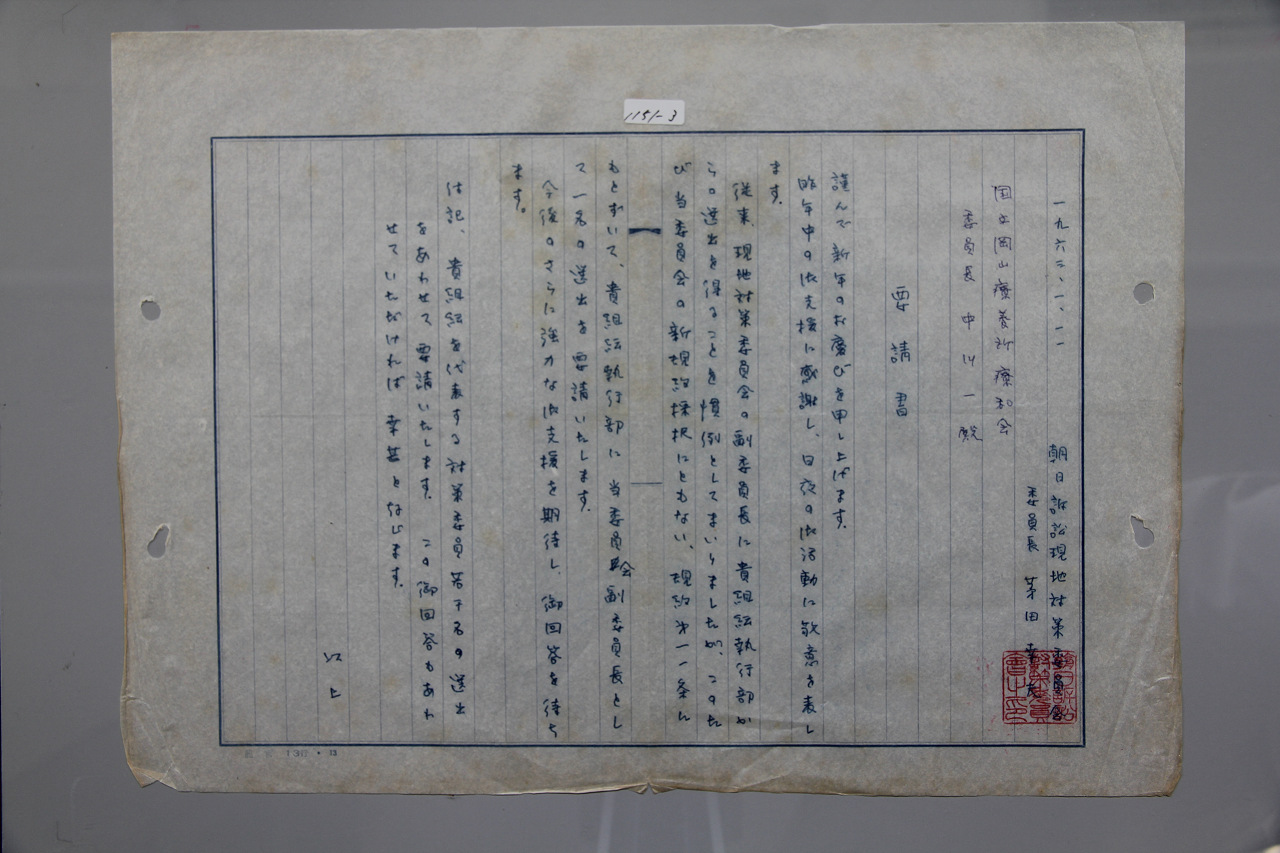 1151-3
一九六二、一、一一
朝日訴訟現地対策委員会
委員長 茅田
国立岡山療養所療和会
委員長 中川一殿
要請書
謹んで新年のお慶びを申し上げます。
昨年中の御支援に感謝し、日夜の御活動に敬意を表し
ます。
従来、現地対策委員会の副委員長に貴組織執行部か
らの選出を得ることを慣例としてまいりましたが、このた
び当委員会の新規約採択にともない、規約第一一条に
もとずいて、貴組織執行部に当委員会副委員長とし
て一名の選出を要請いたします。
今後のさらに強力な御支援を期待し、御回答を待ち
ます。
付記、貴組織を代表する対策委員若干名の選出
をあわせて要請いたします。この御回答もあわ
せていただければ幸甚となじます。
以上